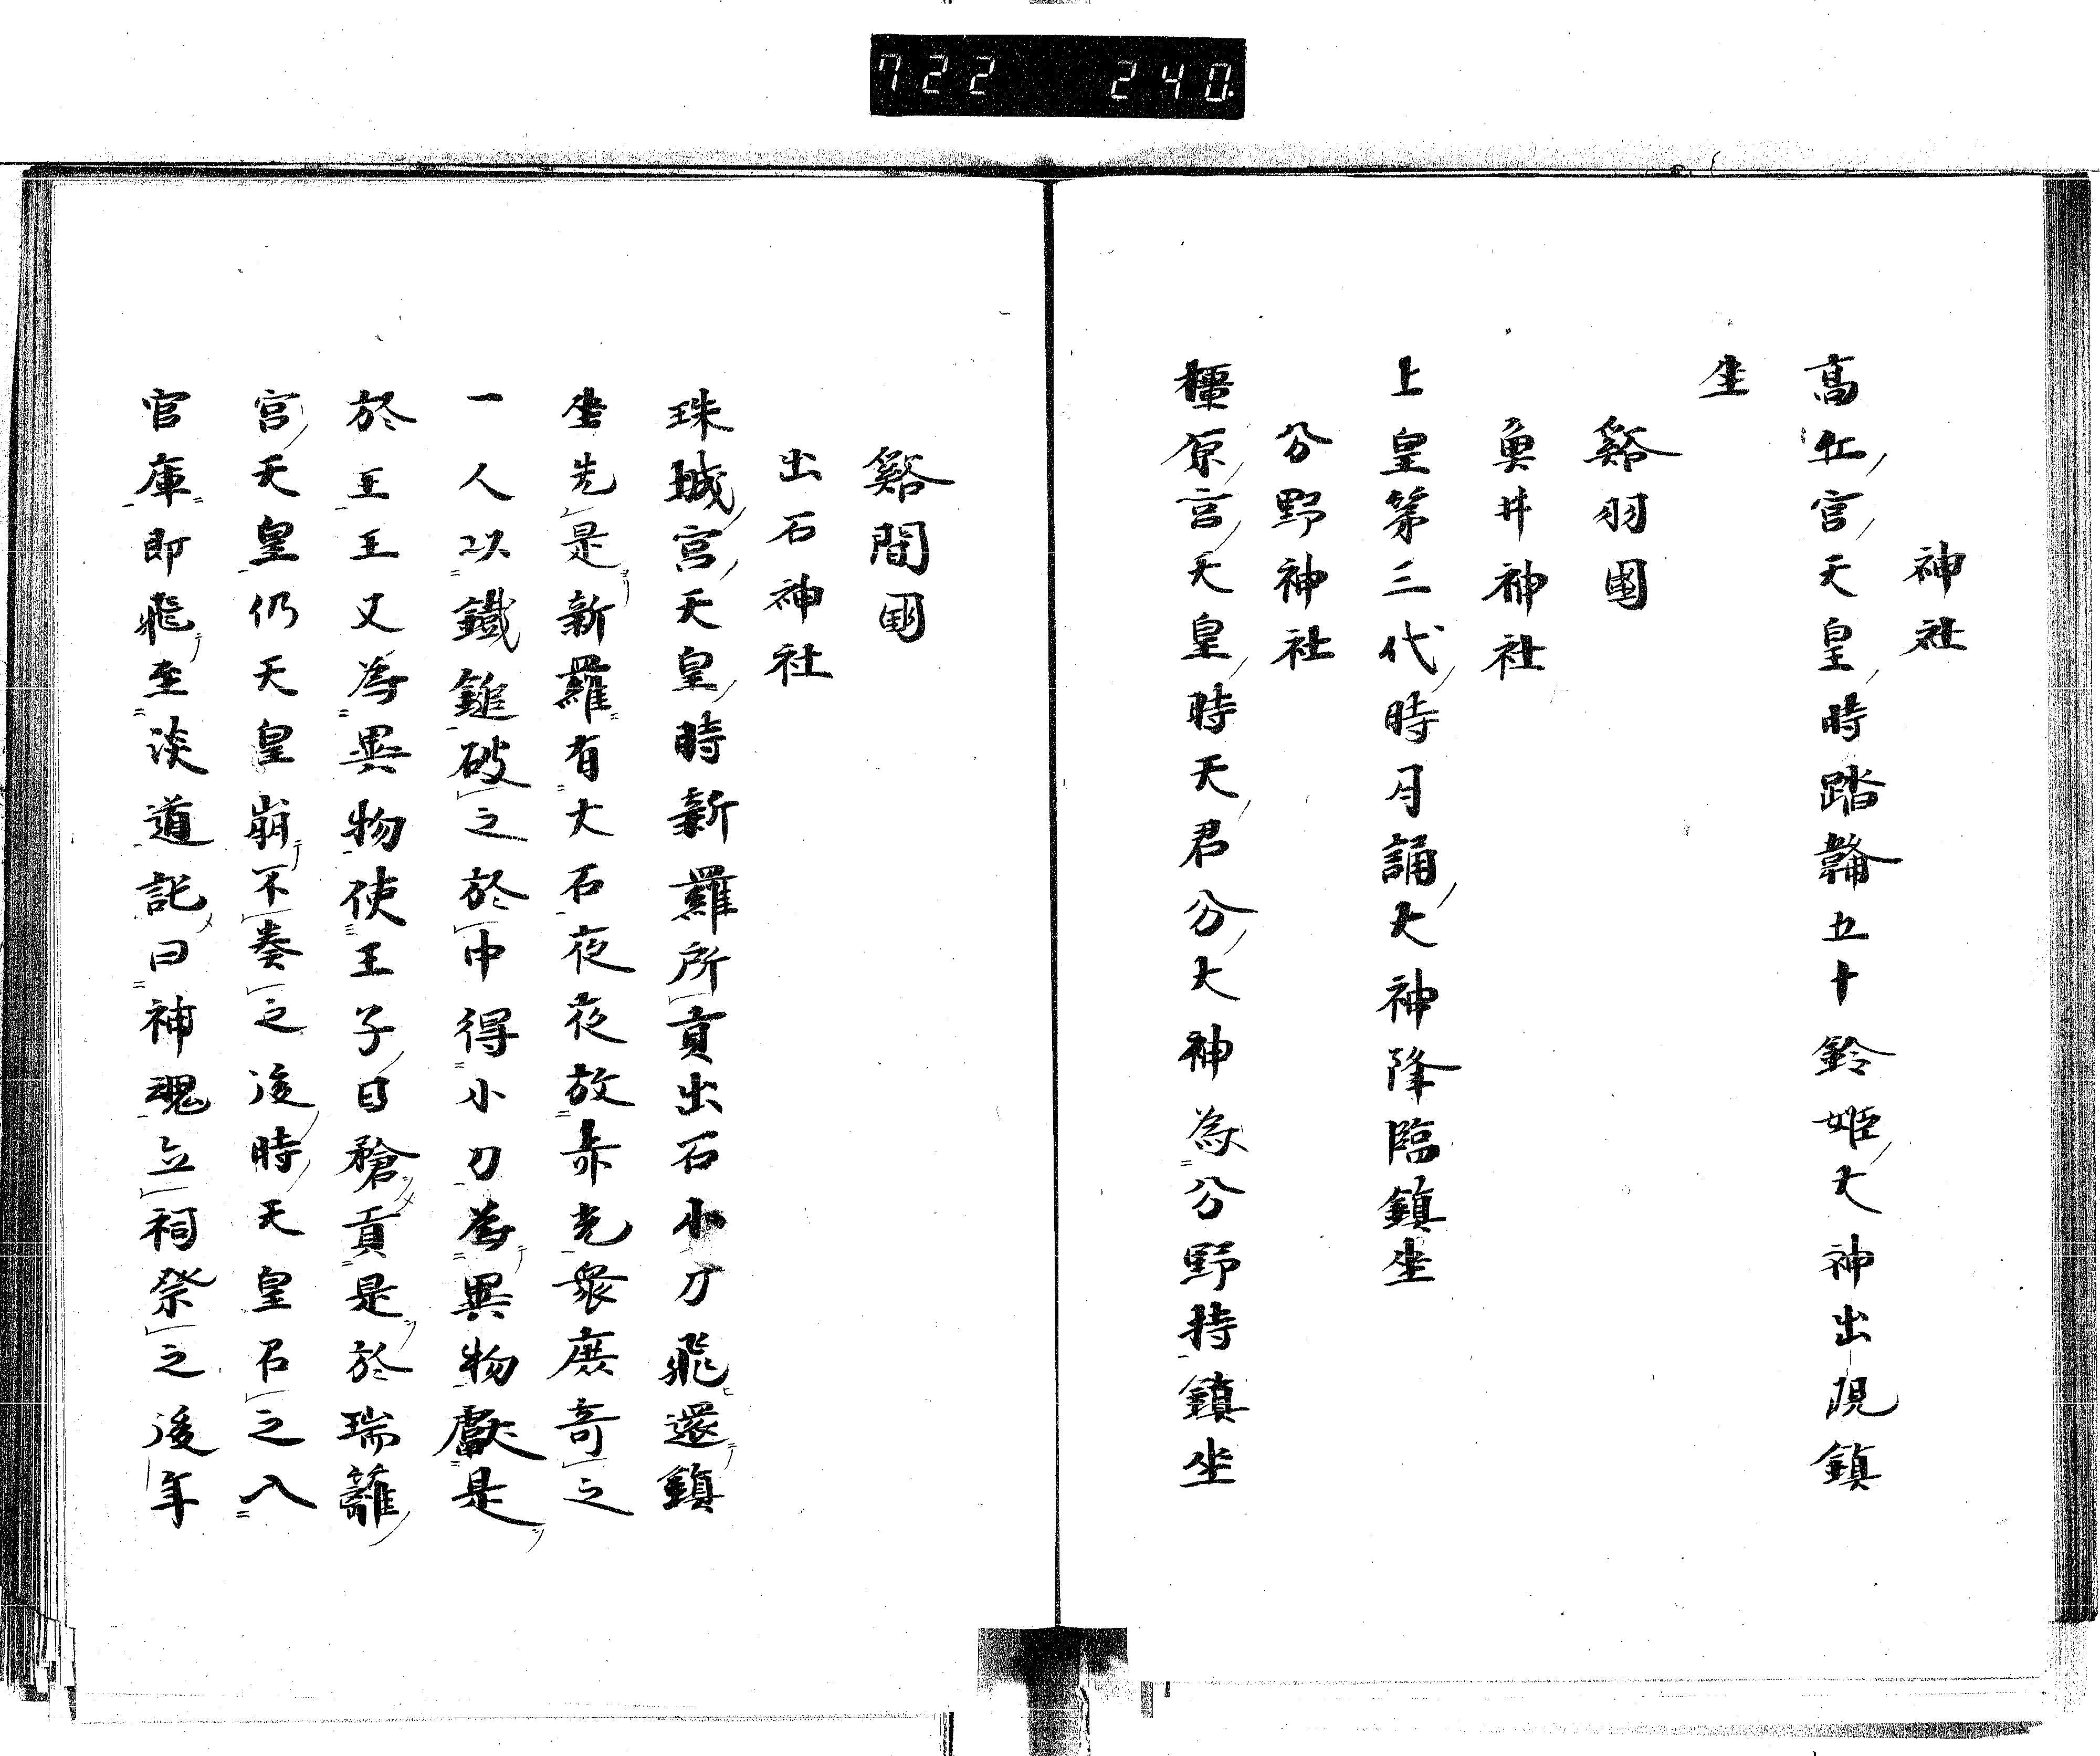 722 240
神社
高丘宮天皇時踏鞴五十鈴姬大神出現鎮
坐
谿羽國
奠井神社
上皇第三代時月誦大神降臨鎮坐
分野神社
橿原宮天皇時天君分大神為分野持鎮坐
谿間国
出石神社
珠城宮天皇時新羅所貢出石小刀飛還鎮
坐先是新羅有大石夜夜放赤光衆庶奇之
一人以鐵鎚破之於中得小刀為異物獻是
於王王又為異物使王子日槍貢是於瑞籬
宮天皇仍天皇崩不奏之後時天皇召之入
官庫即飛至淡道託曰神魂立祠祭之後年